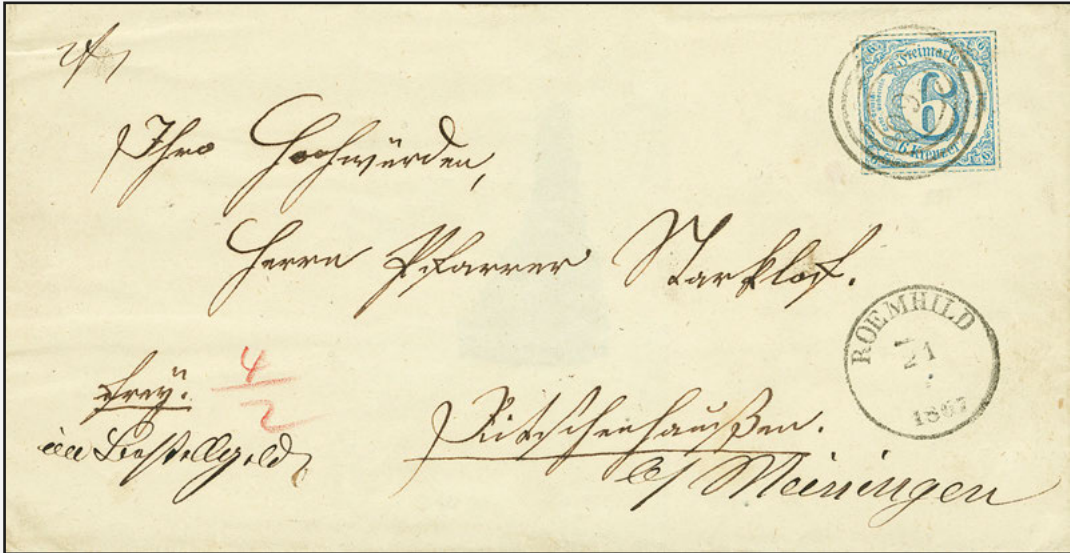 Freimarke
6
6. Kreuzer
Ihro Hochwürden,
Herrn Pfarrer Starklof.
ROEMHILD
21
1867
frey.
4
2
Bestellgeld
Jüchsenhaußen.
b/ Meiningen